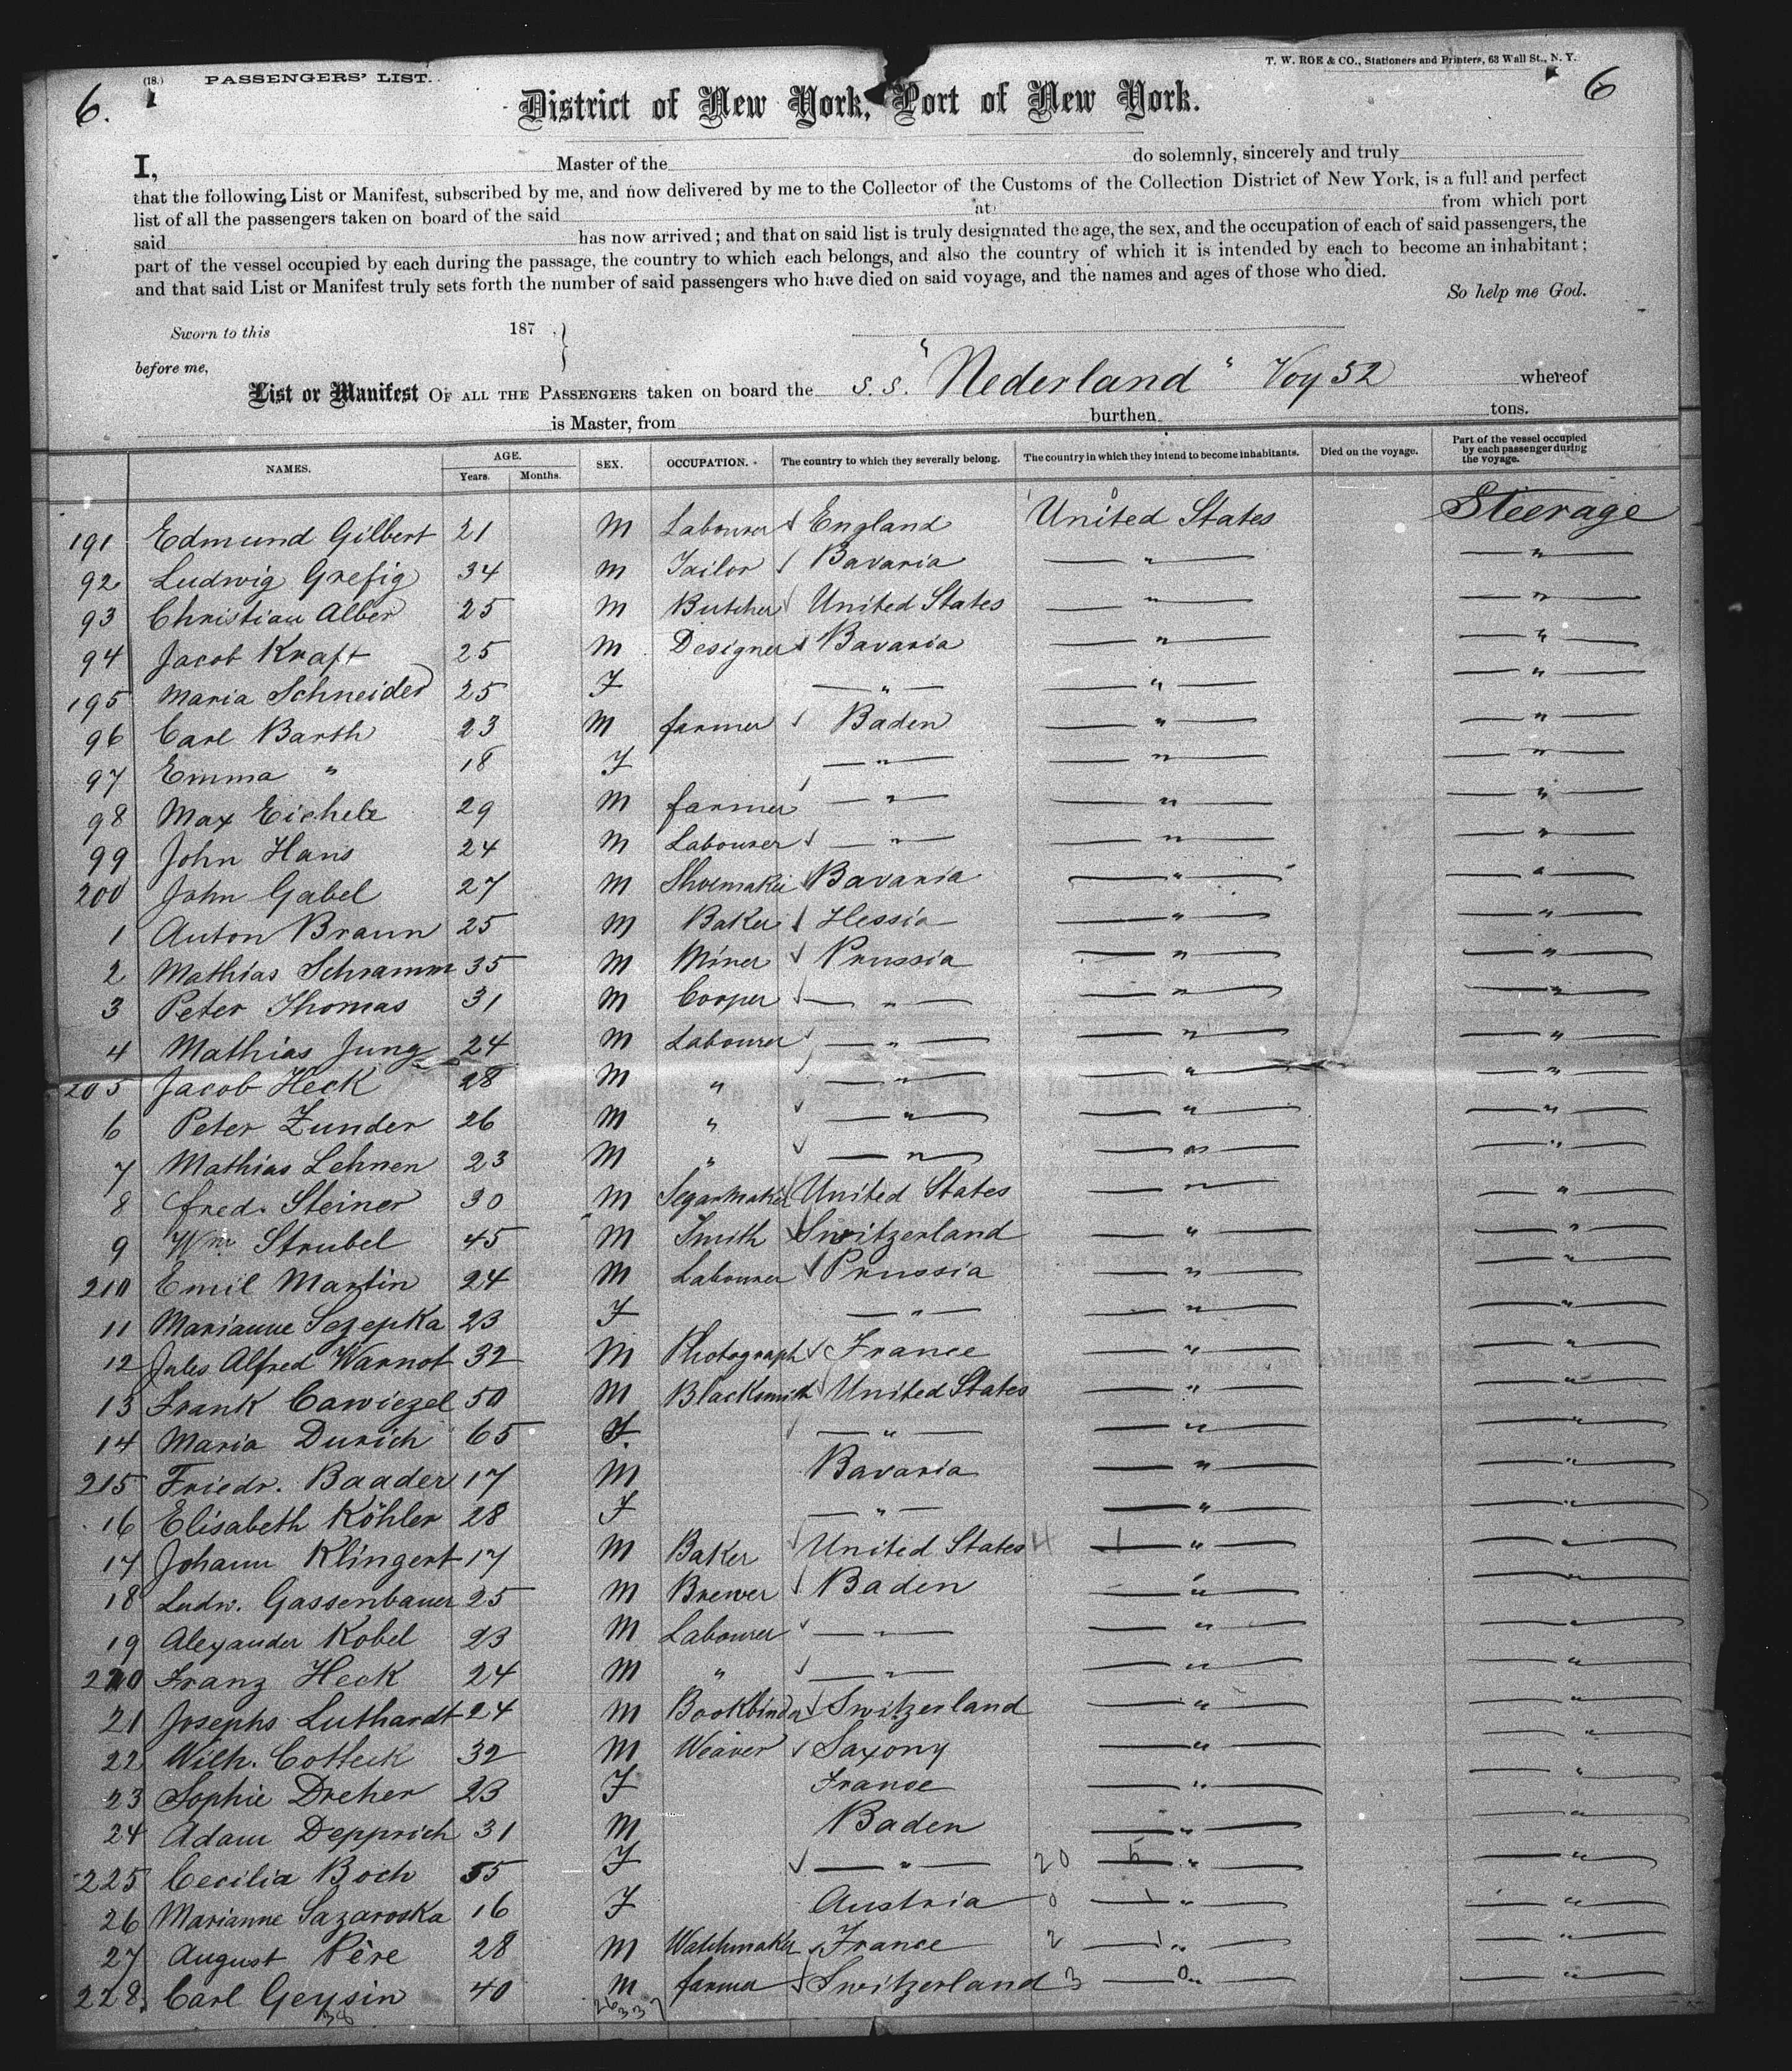 T. W. ROE & CO., Stationers and Printers, 63 Wall St., N. Y.
(18.) PASSENGERS' LIST.
6. 6
District of New York, Port of New York.
I, Master of the do solemnly, sincerely and truly
that the following List or Manifest, subscribed by me, and now delivered by me to the Collector of the Customs of the Collection District of New York, is a full and perfect
list of all the passengers taken on board of the said at from which port
said has now arrived; and that on said list is truly designated the age, the sex, and the occupation of each of said passengers, the
part of the vessel occupied by each during the passage, the country to which each belongs, and also the country of which it is intended by each to become an inhabitant;
and that said List or Manifest truly sets forth the number of said passengers who have died on said voyage, and the names and ages of those who died.
So help me God.
Sworn to this 187
before me,
List or Manifest OF ALL THE PASSENGERS taken on board the S.S. "Nederland" Voy 32 whereof
is Master, from burthen tons.
NAMES. AGE. Years. Months. SEX. OCCUPATION. The country to which they severally belong. The country in which they intend to become inhabitants. Died on the voyage. Part of the vessel occupied by each passenger during the voyage.
191 Edmund Gilbert 21 M Labourer England United States Steerage
92 Ludwig Grefig 34 M Tailor Bavaria " "
93 Christian Alber 25 M Butcher United States " "
94 Jacob Kraft 25 M Designer Bavaria " "
195 Maria Schneider 25 F " " "
96 Carl Barth 23 M farmer Baden " "
97 Emma " 18 F " " "
98 Max Eichele 29 M farmer " " "
99 John Hans 24 M Labourer " " "
200 John Gabel 27 M Shoemaker Bavaria " "
1 Anton Braun 25 M Baker Hessia " "
2 Mathias Schramm 35 M Miner Prussia " "
3 Peter Thomas 31 M Cooper " " "
4 Mathias Jung 24 M Labourer " " "
205 Jacob Heck 28 M " " " "
6 Peter Zunder 26 M " " " "
7 Mathias Lehnen 23 M " " " "
8 Fred. Steiner 30 M Segarmaker United States " "
9 Wm Strubel 45 M Smith Switzerland " "
210 Emil Martin 24 M Labourer Prussia " "
11 Marianne Sezepka 23 F " " "
12 Jules Alfred Warnot 32 M Photograph France " "
13 Frank Cawiezel 50 M Blacksmith United States " "
14 Maria Durich 65 F. " " "
215 Friedr. Baader 17 M Bavaria " "
16 Elisabeth Köhler 28 F " " "
17 Johann Klingert 17 M Baker United States 4 1 " "
18 Ludw. Gassenbauer 25 M Brewer Baden " "
19 Alexander Kobel 23 M Labourer " " "
220 Franz Heck 24 M " " " "
21 Josephs Luthardt 24 M Bookbinder Switzerland " "
22 Wilh. Cotteck 32 M Weaver Saxony " "
23 Sophie Dreher 23 F France " "
24 Adam Depprich 31 M Baden " "
225 Cecilia Boch 55 F " 20 5 " "
26 Marianne Sazaroska 16 F Austria 0 1 " "
27 August Père 28 M Watchmaker France 2 1 " "
228. Carl Geysin 40 M farmer Switzerland 3 0 " "
38